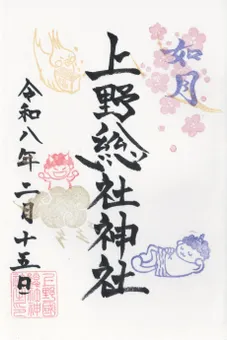 如月
上野総社神社
令和八年二月十五日